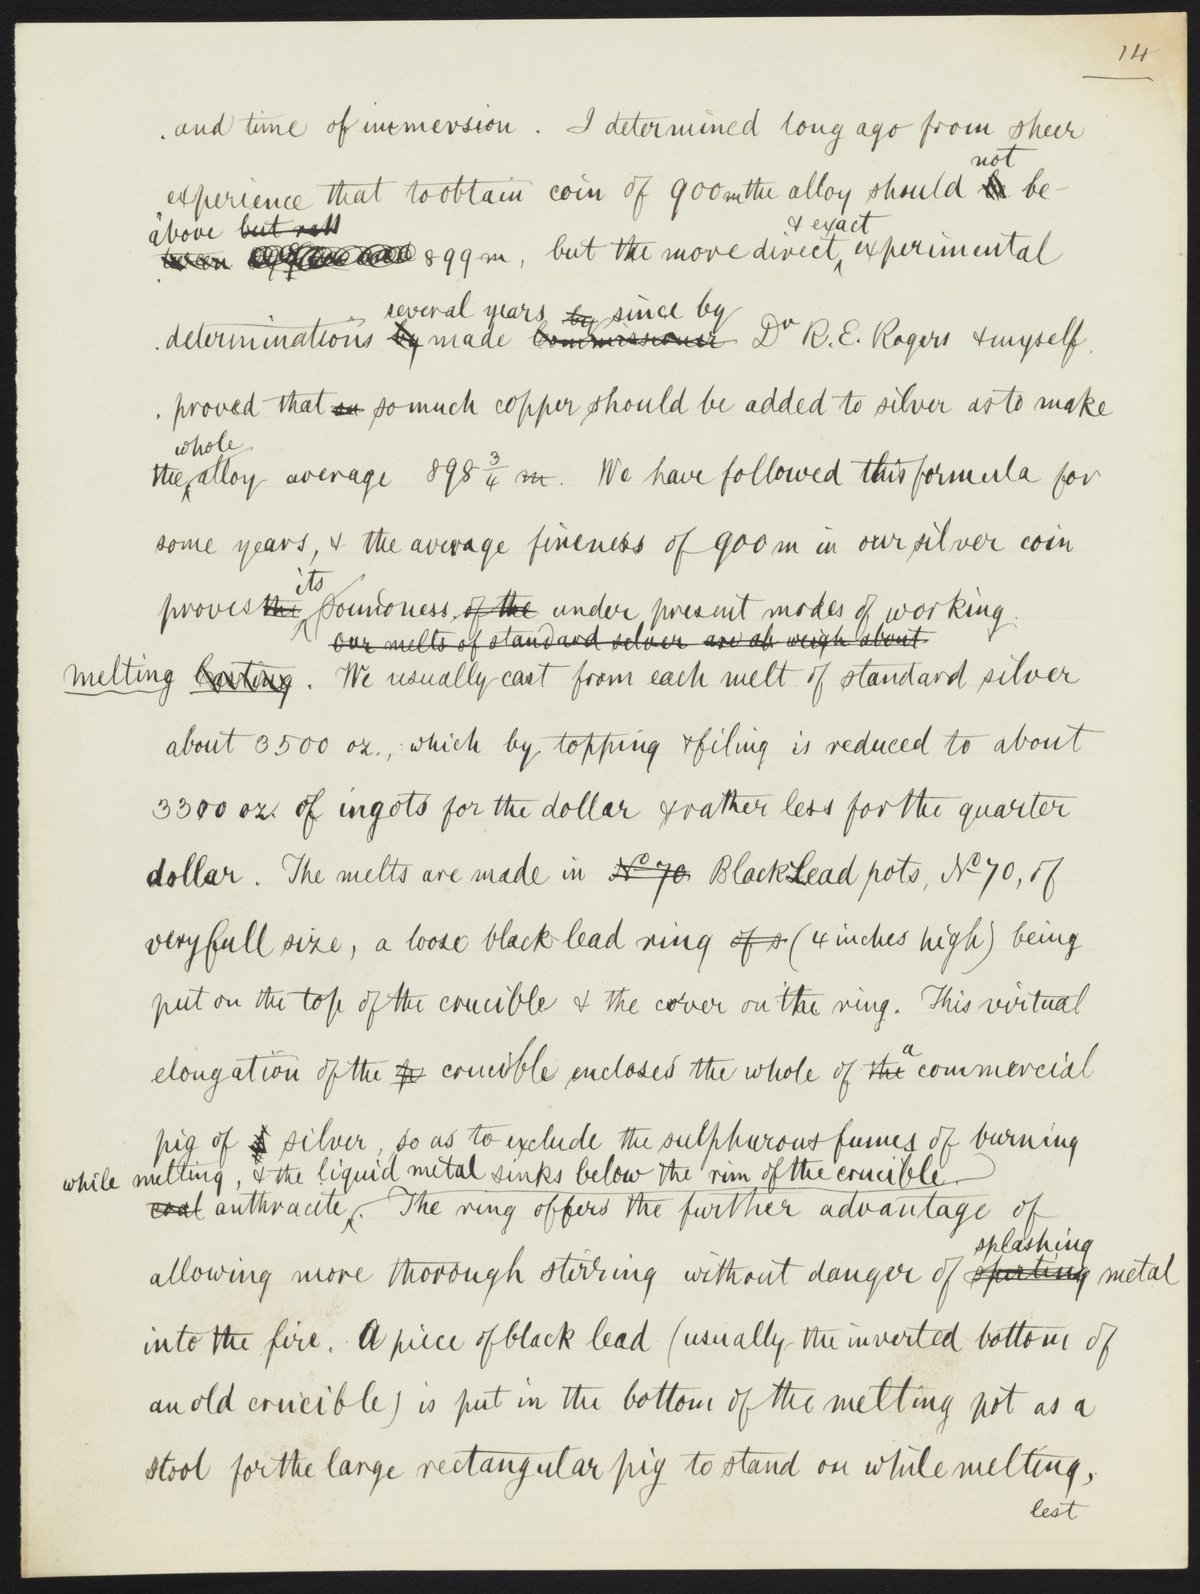 14
and time of immersion. I determined long ago from sheer
not
experience that to obtain coin of 900m the alloy should be
above but
& exact
899m, but the more direct, experimental
several years by since by
determinations by made Commissioner Dr R. E. Rogers & myself
proved that so so much copper should be added to silver as to make
whole
the alloy average 898 3/4 m. We have followed this formula for
some years, & the average fineness of 900m in our silver coin
its
proves the soundness of the under present modes of working.
Our melts of standard silver are all weigh about
melting Casting. We usually cast from each melt of standard silver
about 3500 oz., which by topping & filing is reduced to about
3300 oz. of ingots for the dollar & rather less for the quarter
dollar. The melts are made in No 70 Black Lead pots, No 70, of
very full size, a loose black lead ring of s (4 inches high) being
put on the top of the crucible & the cover on the ring. This virtual
a
elongation of the crucible encloses the whole of the commercial
pig of silver, so as to exclude the sulphurous fumes of burning
while melting, & the liquid metal sinks below the rim of the crucible
coal anthracite. The ring offers the further advantage of
splashing
allowing more thorough stirring without danger of spirting metal
into the fire. A piece of black lead (usually the inverted bottom of
an old crucible) is put in the bottom of the melting pot as a
stool for the large rectangular pig to stand on while melting,
lest